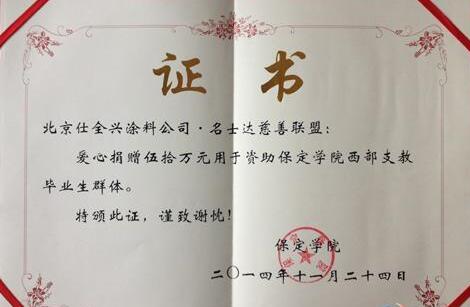 证 书
北京仕全兴涂料公司·名士达慈善联盟：
爱心捐赠伍拾万元用于资助保定学院西部支教
毕业生群体。
特颁此证，谨致谢忱！
保定学院
二〇一四年十一月二十四日